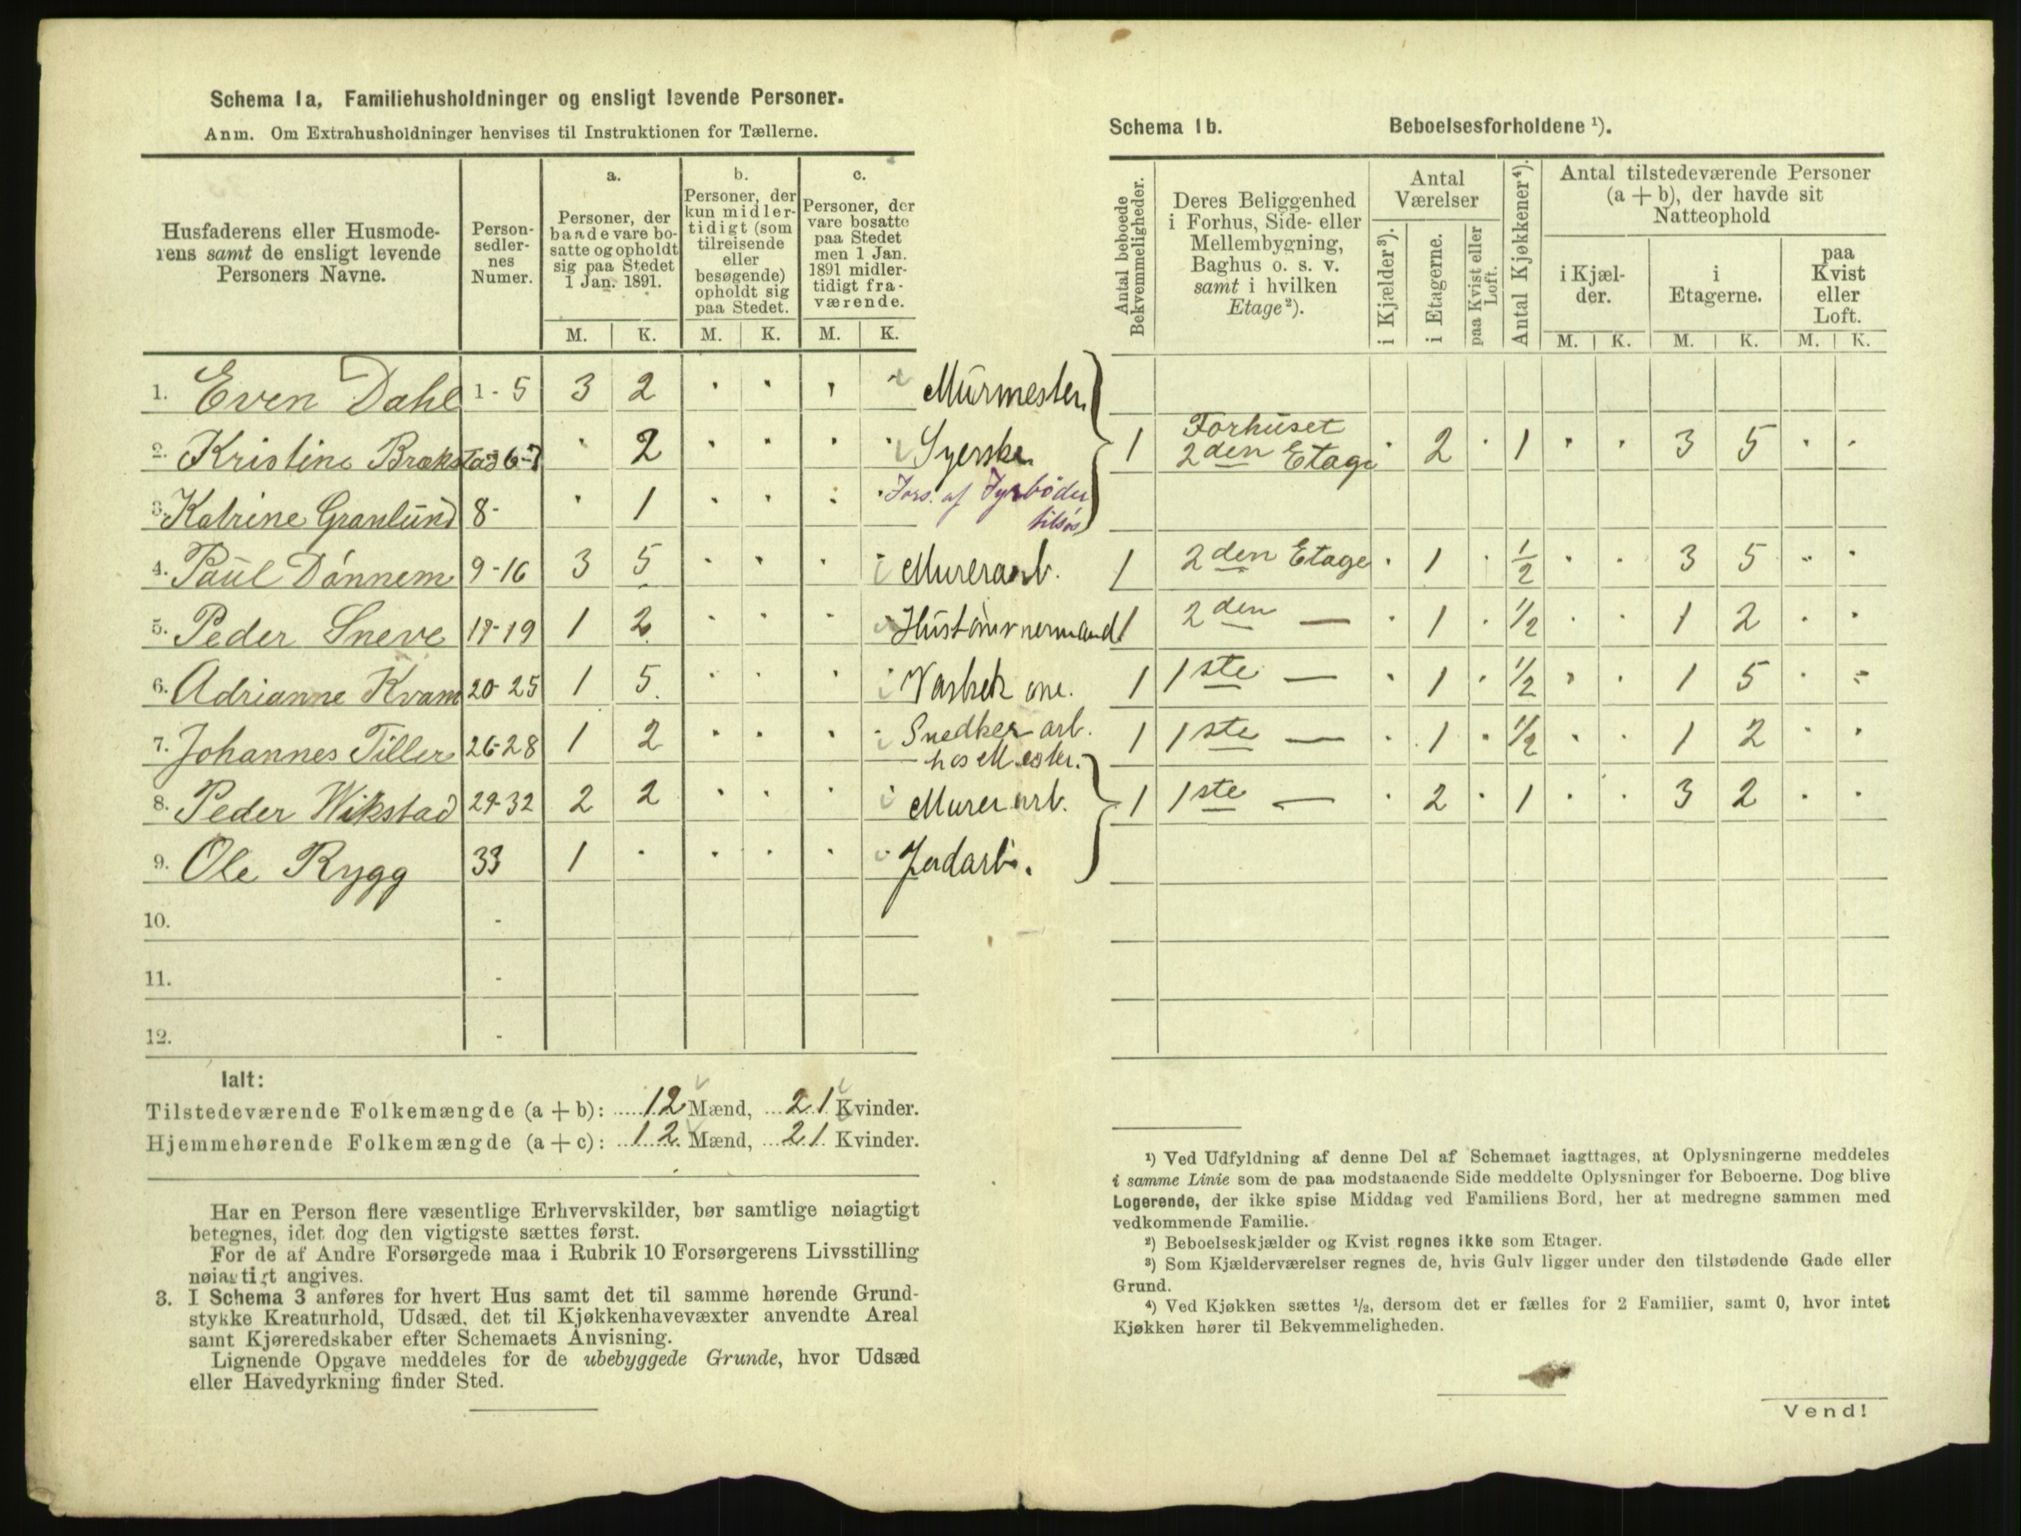 Schema 1a, Familiehusholdninger og ensligt levende Personer.
Anm. Om Extrahusholdninger henvises til Instruktionen for Tællerne.
Husfaderens eller Husmoderens samt de ensligt levende Personers Navne.
Personsedlernes Numer.
a.
Personer, der baade vare bosatte og opholdt sig paa Stedet 1 Jan. 1891.
b.
Personer, der kun midlertidigt (som tilreisende eller besøgende) opholdt sig paa Stedet.
c.
Personer, der vare bosatte paa Stedet men 1 Jan. 1891 midlertidigt fraværende.
M. K. M. K. M. K.
1. Even Dahl 1-5 3 2 · · · · Murmester
2. Kristine Brækstad 6-7 · 2 · · · · Syerske
3. Katrine Granlund 8- · 1 · · · · Fors. af Fyrbøder
tilsøs
4. Paul Dønnem 9-16 3 5 · · · Murerarb.
5. Peder Sneve 17-19 1 2 · · · Hustømmermand
6. Adrianne Kvam 20-25 1 5 · · · Vaskekone.
7. Johannes Tiller 26-28 1 2 · · · · Snedker arb.
hos Mester.
8. Peder Wikstad 29-32 2 2 · · · Murer arb.
9. Ole Rygg 33 1 · · · · · Jordarb.
10. -
11. -
12. -
Ialt:
Tilstedeværende Folkemængde (a + b): 12 Mænd, 21 Kvinder.
Hjemmehørende Folkemængde (a + c): 12 Mænd, 21 Kvinder.
Har en Person flere væsentlige Erhvervskilder, bør samtlige nøiagtigt
betegnes, idet dog den vigtigste sættes først.
For de af Andre Forsørgede maa i Rubrik 10 Forsørgerens Livsstilling
nøiagtigt angives.
3. I Schema 3 anføres for hvert Hus samt det til samme hørende Grund-
stykke Kreaturhold, Udsæd, det til Kjøkkenhavevæxter anvendte Areal
samt Kjøreredskaber efter Schemaets Anvisning.
Lignende Opgave meddeles for de ubebyggede Grunde, hvor Udsæd
eller Havedyrkning finder Sted.
Schema 1b. Beboelsesforholdene ¹).
Antal beboede Bekvemmeligheder.
Deres Beliggenhed i Forhus, Side- eller Mellembygning, Baghus o. s. v. samt i hvilken Etage ²).
Antal Værelser
i Kjælder ³).
i Etagerne.
paa Kvist eller Loft.
Antal Kjøkkener ⁴).
Antal tilstedeværende Personer (a + b), der havde sit Natteophold
i Kjælder.
i Etagerne.
paa Kvist eller Loft.
M. K. M. K. M. K.
1 Forhuset
2den Etage · 2 · 1 · · 3 5 · ·
1 2den Etage · 1 · 1/2 · · 3 5 · ·
1 2den — · 1 · 1/2 · · 1 2 · ·
1 1ste — · 1 · 1/2 · · 1 5 · ·
1 1ste — · 1 · 1/2 · · 1 2 · ·
1 1ste — · 2 · 1 · · 3 2 · ·
¹) Ved Udfyldning af denne Del af Schemaet iagttages, at Oplysningerne meddeles
i samme Linie som de paa modstaaende Side meddelte Oplysninger for Beboerne. Dog blive
Logerende, der ikke spise Middag ved Familiens Bord, her at medregne sammen med
vedkommende Familie.
²) Beboelseskjælder og Kvist regnes ikke som Etager.
³) Som Kjælderværelser regnes de, hvis Gulv ligger under den tilstødende Gade eller
Grund.
⁴) Ved Kjøkken sættes 1/2, dersom det er fælles for 2 Familier, samt 0, hvor intet
Kjøkken hører til Bekvemmeligheden.
Vend!